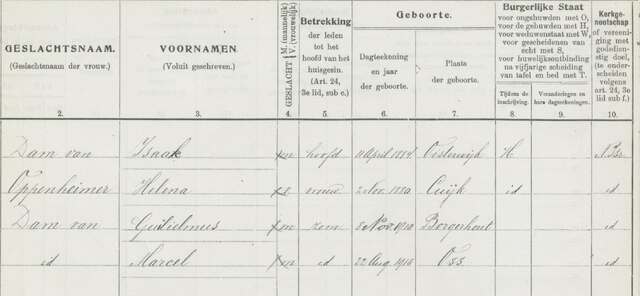 GESLACHTSNAAM.
(Geslachtsnaam der vrouw.)
2.
VOORNAMEN.
(Voluit geschreven.)
3.
GESLACHT M. (mannelijk) V. (vrouwelijk)
4.
Betrekking
der leden
tot het
hoofd van het
huisgezin.
(Art. 24,
3e lid, sub c.)
5.
Geboorte.
Dagteekening
en jaar
der geboorte.
6.
Plaats
der geboorte.
7.
Burgerlijke Staat
voor ongehuwden met O,
voor de gehuwden met H,
voor weduwenstaat met W,
voor gescheidenen
van echt met S,
voor huwelijksontbinding
na vijfjarige scheiding
van tafel en bed met T.
Tijdens de
inschrijving.
8.
Veranderingen en
hare dagteekeningen.
9.
Kerkge-
nootschap
of vereeni-
ging met
godsdien-
stig doel,
(te onder-
scheiden
volgens
art. 24, 3e
lid, sub f.)
10.
Dam van Isaak m hoofd 11 April 1884 Oisterwijk H N.Isr.
Oppenheimer Helena vrouw 2 Nov. 1880 Cuijk id id
Dam van m zoon 8 Nov. 1910 Borgerhout id
id Marcel m id 22 Aug. 1915 Oss id